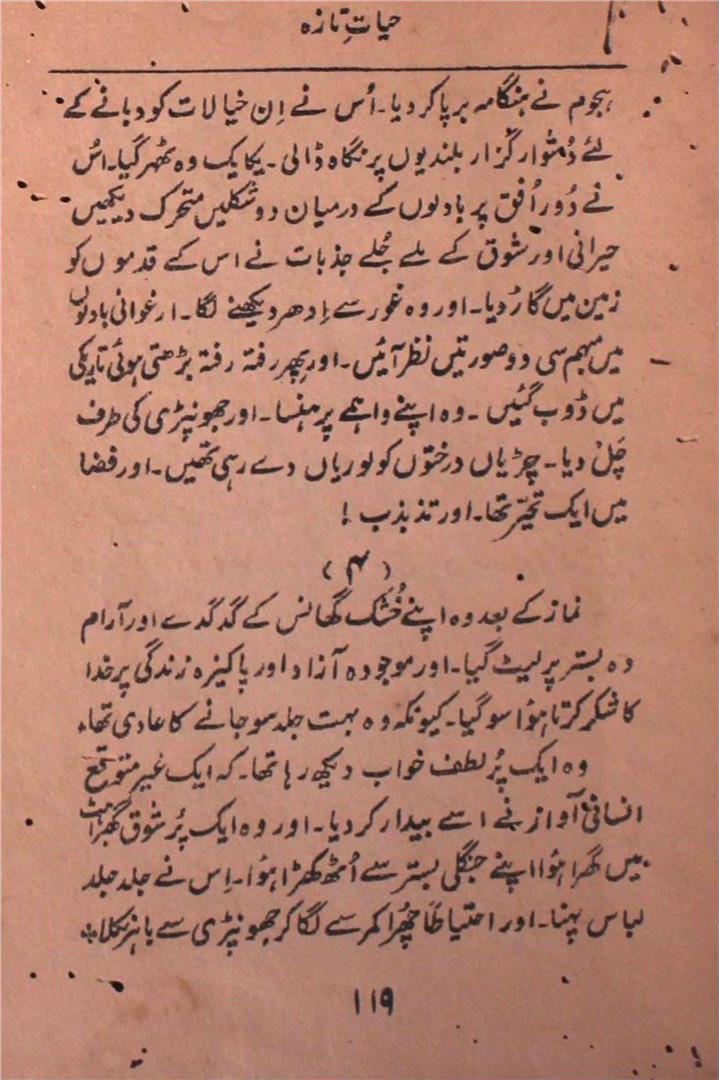 حیاتِ تازہ
ہجوم نے ہنگامہ برپا کر دیا۔ اُس نے اِن خیالات کو دبانے کے
لئے دُشوار گزار بلندیوں پر نگاہ ڈالی۔ یکایک وہ ٹھہر گیا۔ اُس
نے دُور اُفق پر بادلوں کے درمیان دو شکلیں متحرک دیکھیں
حیرانی اور شوق کے ملے جُلے جذبات نے اس کے قدموں کو
زمین میں گاڑ دیا۔ اور وہ غور سے اِدھر دیکھنے لگا۔ ارغوانی بادلوں
میں مبہم سی دو صورتیں نظر آئیں۔ اور پھر رفتہ رفتہ بڑھتی ہوئی تاریکی
میں ڈوب گئیں۔ وہ اپنے واہمے پر ہنسا۔ اور جھونپڑی کی طرف
چَل دیا۔ چڑیاں درختوں کو لوریاں دے رہی تھیں۔ اور فضا
میں ایک تحیّر تھا۔ اور تذبذب !
(۴)
نماز کے بعد وہ اپنے خُشک گھانس کے گدگدے اور آرام
دہ بستر پر لیٹ گیا۔ اور موجودہ آزاد اور پاکیزہ زندگی پر خدا
کا شکر کرتا ہؤا سو گیا۔ کیونکہ وہ بہت جلد سو جانے کا عادی تھا۔
وہ ایک پُر لطف خواب دیکھ رہا تھا۔ کہ ایک غیر متوقع
انسانی آواز نے اسے بیدار کر دیا۔ اور وہ ایک پُر شوق گھبراہٹ
میں گھرا ہؤا اپنے جنگلی بستر سے اُٹھ کھڑا ہؤا۔ اِس نے جلد جلد
لباس پہنا۔ اور احتیاطاً چُھرا کمر سے لگا کر جھونپڑی سے باہر نکلا۔
۱۱۹